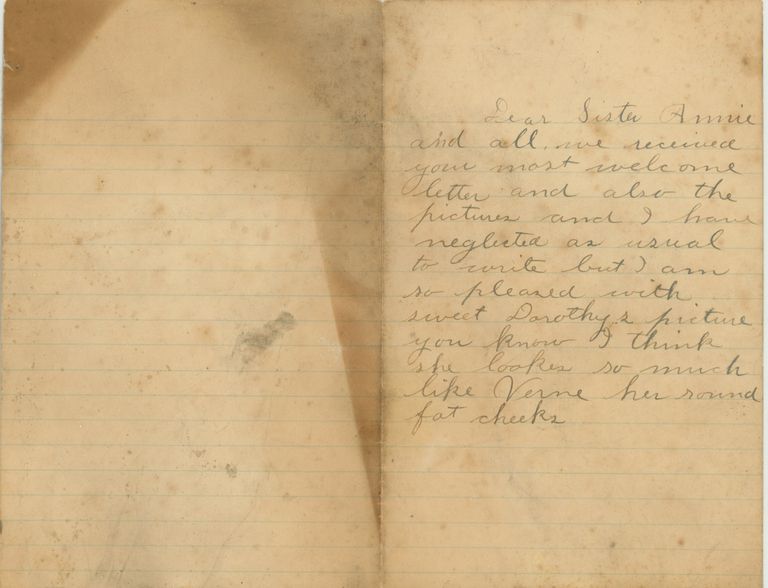 Dear Sister Annie
and all. we received
your most welcome
letter and also the
pictures and I have
neglected as usual
to write but I am
so pleased with
sweet Dorothy,s picture
you know I think
she lookes so much
like Verne her round
fat cheeks